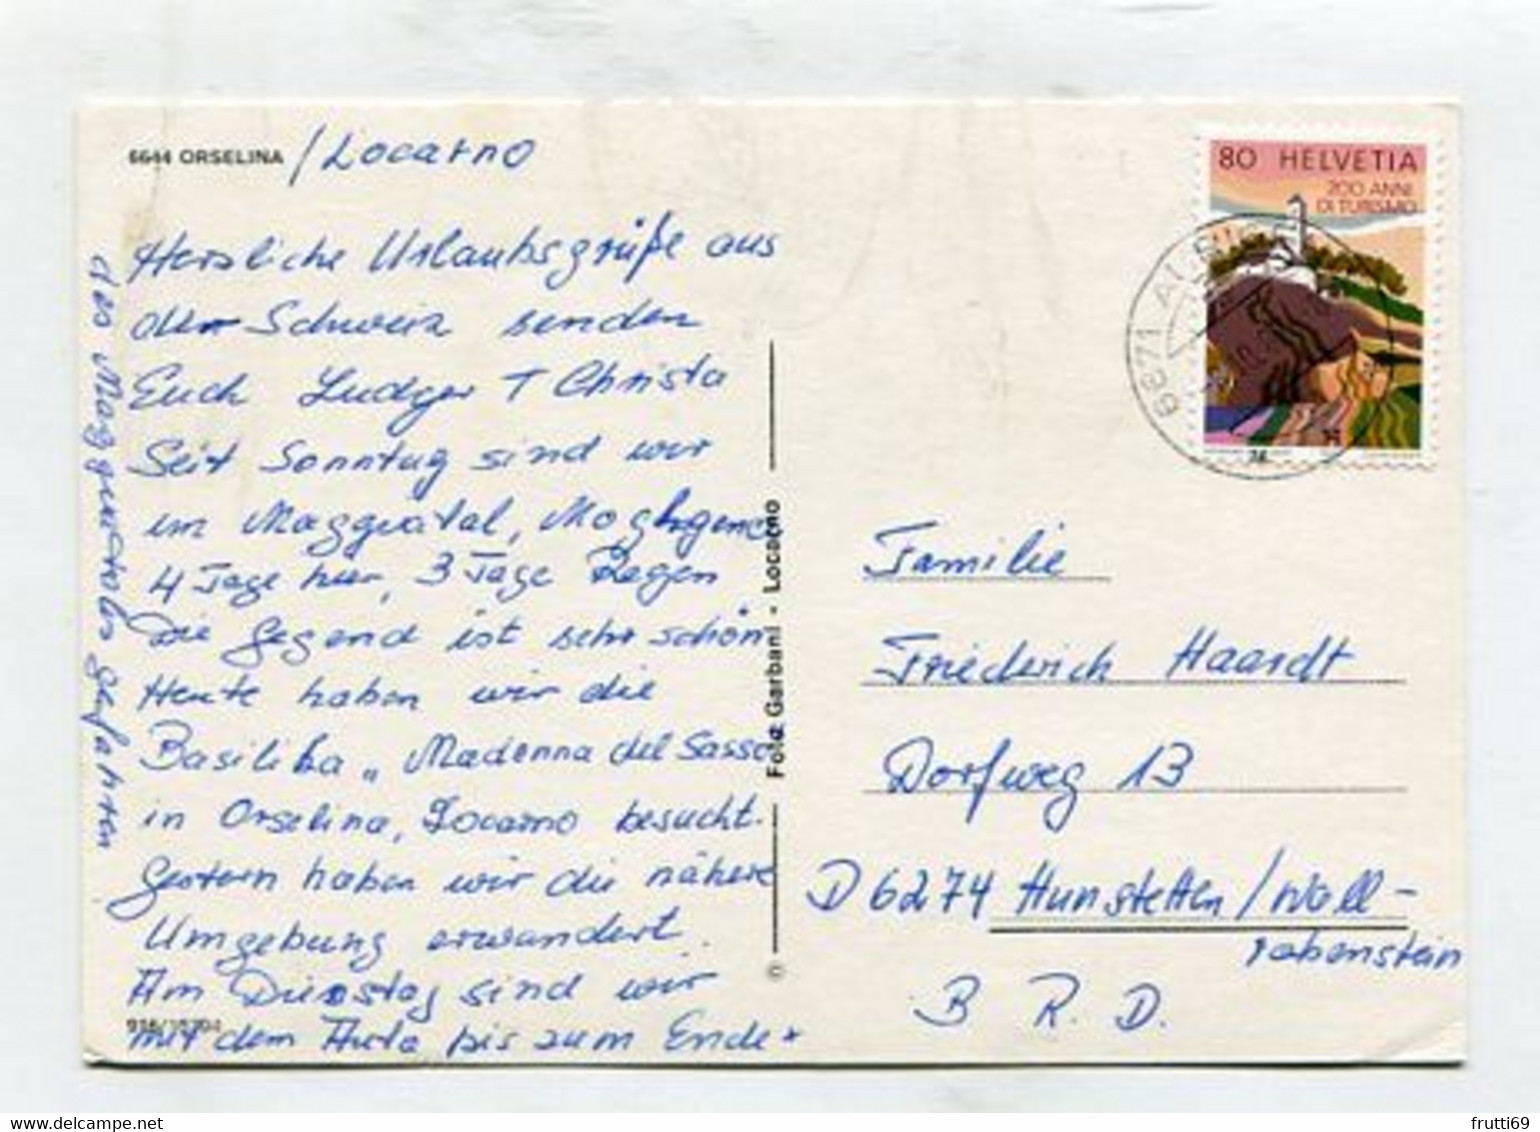 6644 ORSELINA /Locarno
Herzliche Urlaubsgrüße aus
der Schweiz senden
Euch Ludger + Christa
Seit Sonntag sind wir
im Maggiatal,
4 Tage hier, 3 Tage Regen
Die Gegend ist sehr schön
Heute haben wir die
Basilika „Madonna del Sasso
in Orselina, Locarno besucht.
Gestern haben wir die nähere
Umgebung erwandert.
Am Dienstag sind wir
mit dem Auto bis zum Ende
des Maggiatales gefahren
Foto Garbani - Locarno
©
80 HELVETIA
200 ANNI
DI TURISMO
6671
Familie
Friedrich Haardt
Dorfweg 13
D 6274 Hünstetten/Wall-
rabenstein
B. R. D.
frutti69
www.delcampe.net